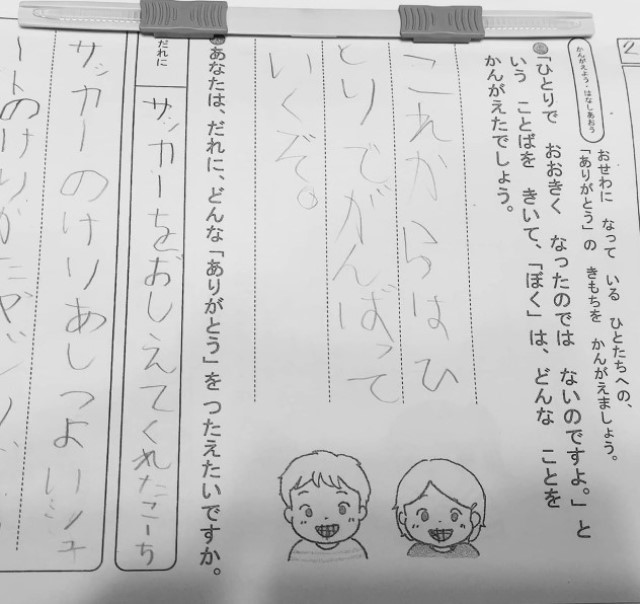 2
かんがえよう・はなしあおう
おせわに なって いる ひとたちへの、
「ありがとう」の きもちを かんがえましょう。
「ひとりで おおきく なったのでは ないのですよ。」と
いう ことばを きいて、「ぼく」は、どんな ことを
かんがえたでしょう。
これからはひ
とりでがんばって
いくぞ。
あなたは、だれに、どんな「ありがとう」を つたえたいですか。
だれに
サッカーをおしえてくれたこーち
サッカーのけりあしつよいシュ
ートのけりかた